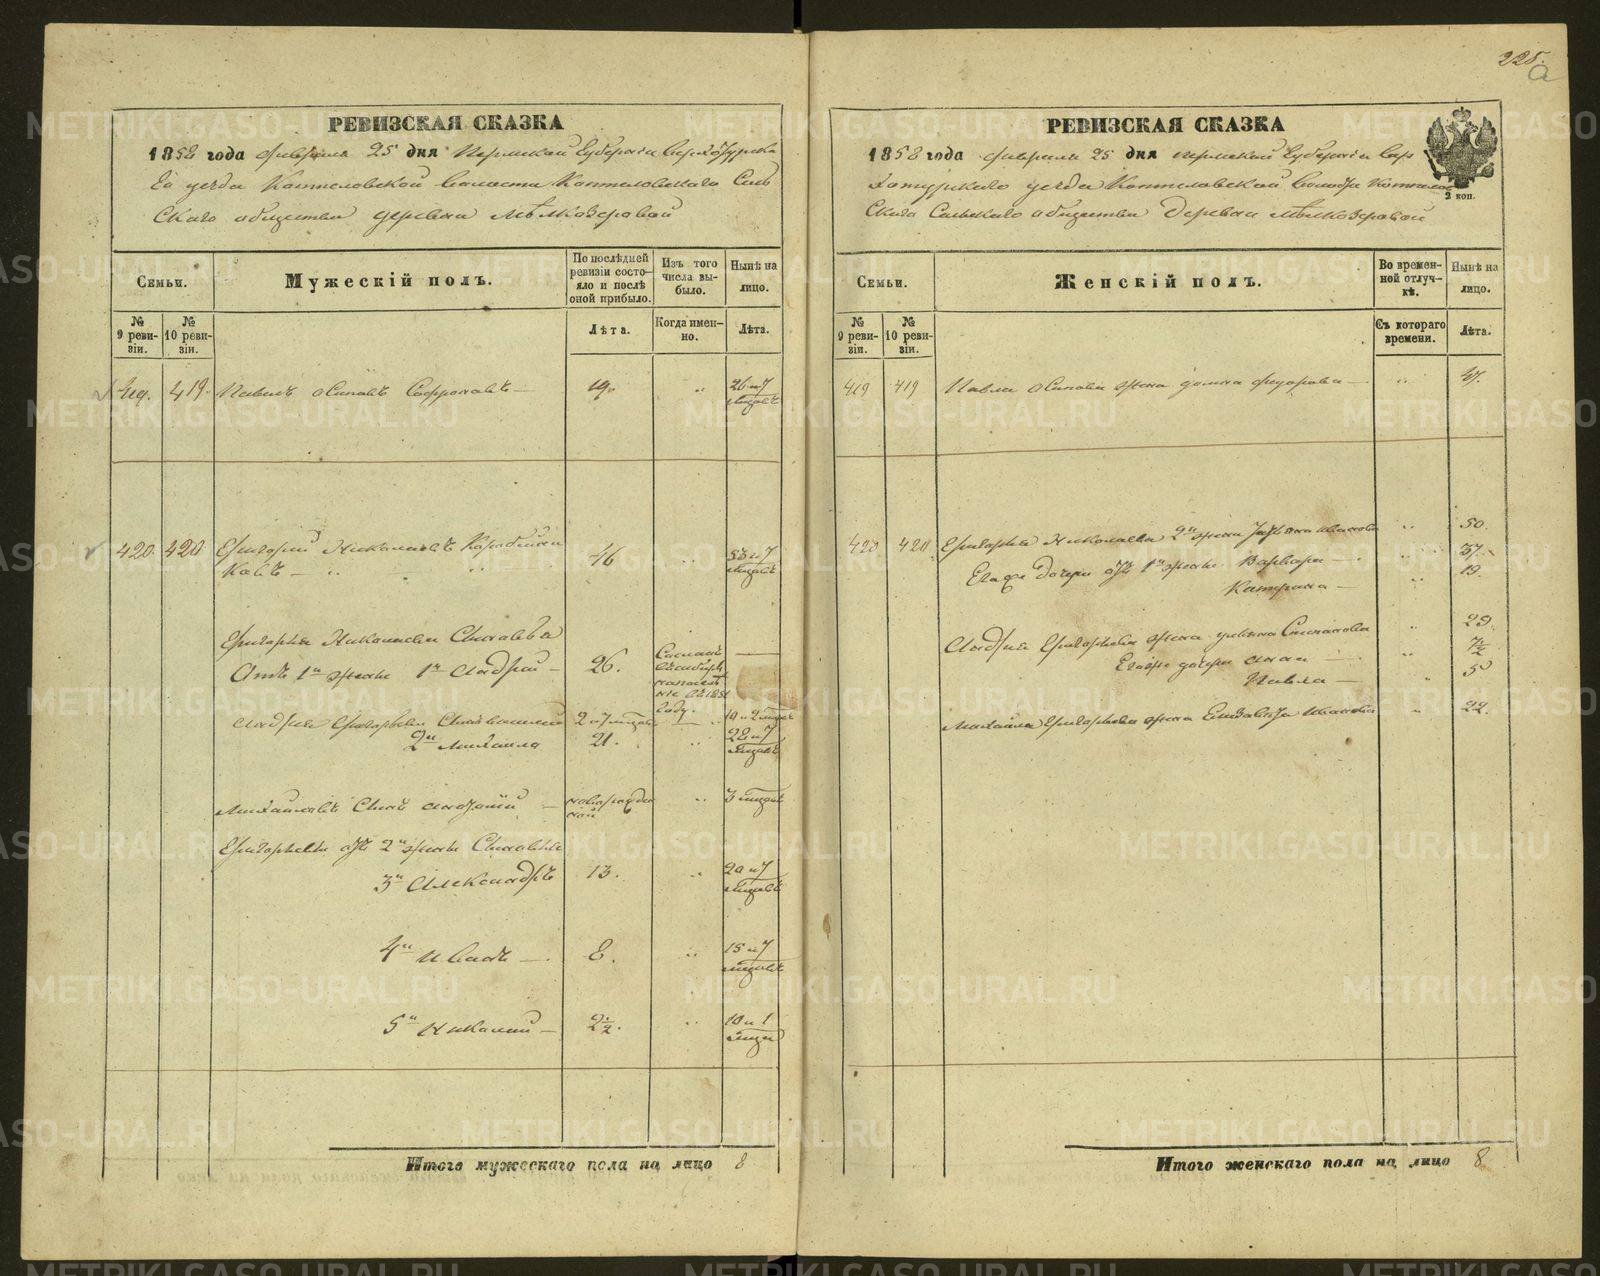 225.
а
РЕВИЗСКАЯ СКАЗКА
1858 года февраля 25 дня Пермской Губернии Верхотурска
го уезда Коптеловской Волости Коптеловскаго Сель
Скаго общества деревни Мѣлкозеровой
Семьи.
Мужескій полъ.
По послѣдней ревизіи состояло и послѣ оной прибыло.
Изъ того числа выбыло.
Нынѣ на лицо.
№ 9 ревизіи.
№ 10 ревизіи.
Лѣта.
Когда именно.
Лѣта.
419. 419. Павелъ Осиповъ Софроновъ — 19. " 26 и 7 мѣсяцовъ
420. 420 Григорий Николаевъ 46 " 53 и 7 мѣсяцовъ
ковъ — "
Григорья Николаева Сыновья
Отъ 1й жены 1й Андрей — 26. Сосланъ
въ Сибирь
на поселе
ніе въ 1851
году.
Андрея Григорьева Сынъ 2 и 7 мѣсяц " 10 и 2 мѣсяц
2й Михаило 21. " 28 и 7 мѣсяцовъ
Михайловъ Сынъ — новорожден
ной " 3 мѣсяцовъ
Григорьевы отъ 2й жены Сыновья
3й Александръ 13. " 20 и 7 мѣсяцовъ
4й Иванъ — 8. " 15 и 7 мѣсяцовъ
5й Николай — 2½. " 10 и 1 мѣсяц
Итого мужескаго пола на лицо 8
РЕВИЗСКАЯ СКАЗКА
1858 года февраля 25 дня Пермской Губерніи Вер
хотурскаго уезда Коптеловской Волости Коптелов
Скаго Сельскаго общества Деревни Мѣлкозеровой
2 коп.
Семьи.
Женскій полъ.
Во временной отлучкѣ.
Нынѣ на лицо.
№ 9 ревизіи.
№ 10 ревизіи.
Съ котораго времени.
Лѣта.
419 419 Павла Осипова жена Домна Федорова — " 27.
420 420 Григорья Николаева 2й жена Татьяна Иванова " 50.
Егоже дочери отъ 1й жены Варвара — " 37.
Катерина — " 19.
Андрея Григорьева жена Ульяна Степанова " 29.
Егоже дочери Анна — " 7½
Павла — " 5
Михайла Григорьева жена Елизавета Иванова " 22.
Итого женскаго пола на лицо 8
METRIKI.GASO-URAL.RU